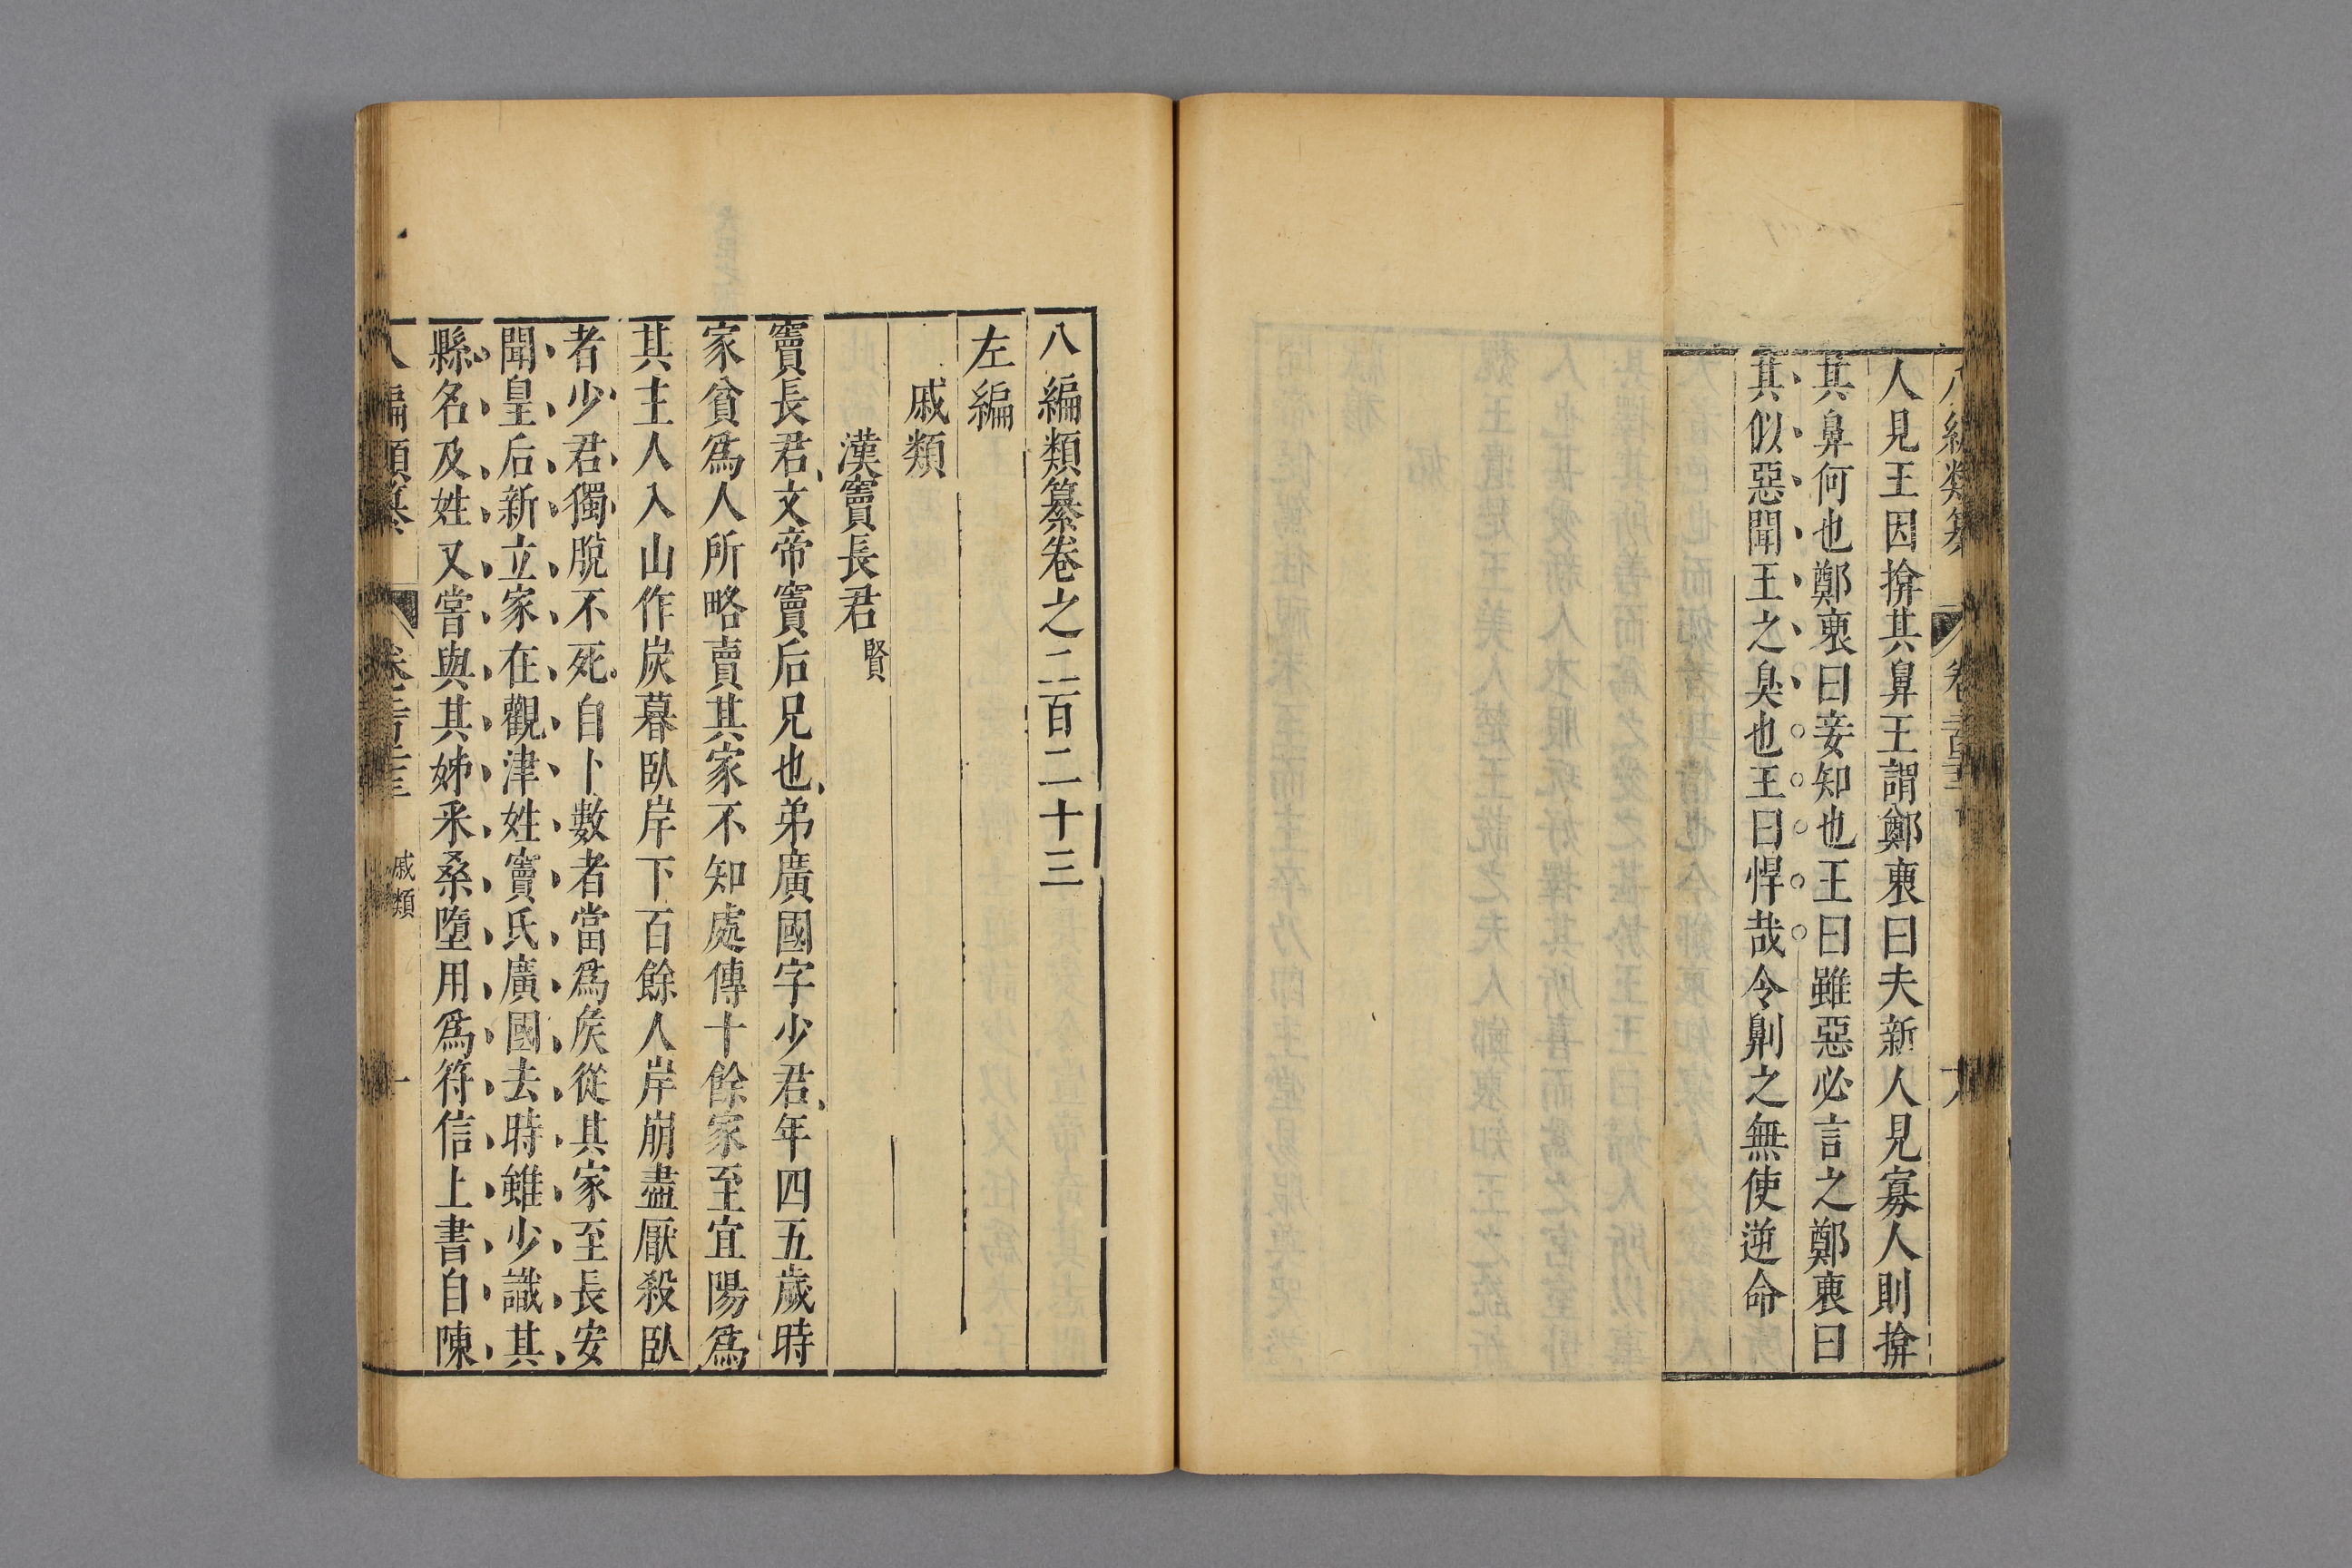 人見王因揜其鼻王謂鄭袖曰夫新人見寡人則揜
其鼻何也鄭袖曰妾知也王曰雖惡必言之鄭袖曰
其似惡聞王之臭也王曰悍哉令劓之無使逆命
八編類纂卷之二百二十三
左編
戚類
漢竇長君賢
竇長君文帝竇后兄也弟廣國字少君年四五歲時
家貧爲人所略賣其家不知處傳十餘家至宜陽爲
其主人入山作炭暮臥岸下百餘人岸崩盡厭殺臥
者少君獨脫不死自卜數者當爲矦從其家至長安
聞皇后新立家在觀津姓竇氏廣國去時雖少識其
縣名及姓又嘗與其姊采桑墮用爲符信上書自陳
戚類
一